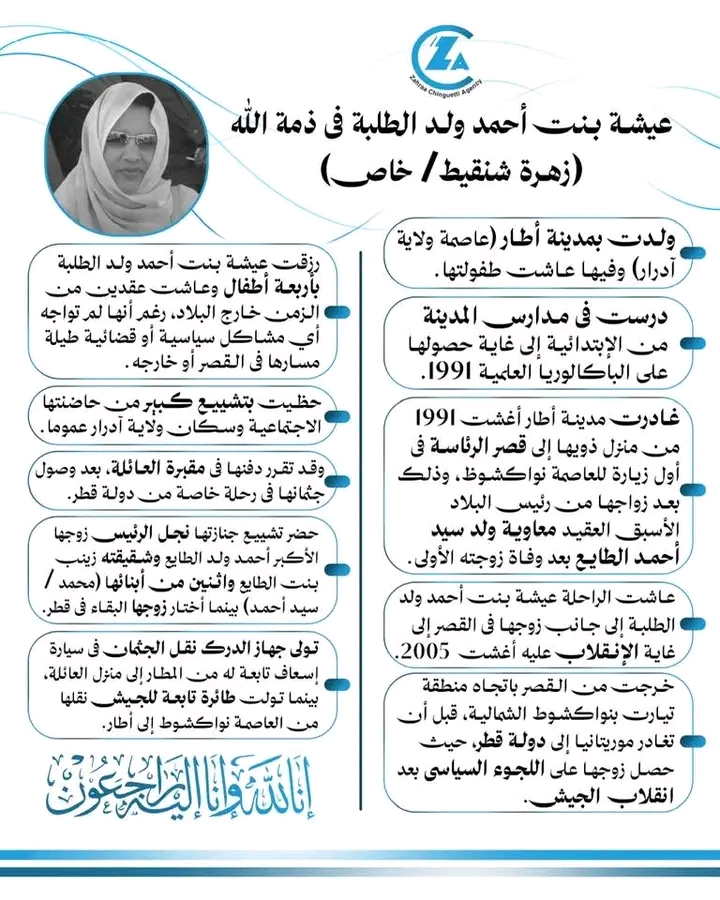 ZA
Zahraa Chinguetti Agency
عيشة بنت أحمد ولد الطلبة في ذمة الله
(زهرة شنقيط/ خاص)
ولدت بمدينة أطار (عاصمة ولاية
آدرار) وفيها عاشت طفولتها.
درست في مدارس المدينة
من الإبتدائية إلى غاية حصولها
على الباكالوريا العلمية 1991.
غادرت مدينة أطار أغشت 1991
من منزل ذويها إلى قصر الرئاسة في
أول زيارة للعاصمة نواكشوط، وذلك
بعد زواجها من رئيس البلاد
الأسبق العقيد معاوية ولد سيد
أحمد الطايع بعد وفاة زوجته الأولى.
عاشت الراحلة عيشة بنت أحمد ولد
الطلبة إلى جانب زوجها في القصر إلى
غاية الإنقلاب عليه أغشت 2005.
خرجت من القصر باتجاه منطقة
تيارت بنواكشوط الشمالية، قبل أن
تغادر موريتانيا إلى دولة قطر، حيث
حصل زوجها على اللجوء السياسي بعد
انقلاب الجيش.
رزقت عيشة بنت أحمد ولد الطلبة
بأربعة أطفال وعاشت عقدين من
الزمن خارج البلاد، رغم أنها لم تواجه
أي مشاكل سياسية أو قضائية طيلة
مسارها في القصر أو خارجه.
حظيت بتشييع كبير من حاضنتها
الاجتماعية وسكان ولاية آدرار عموما.
وقد تقرر دفنها في مقبرة العائلة، بعد وصول
جثمانها في رحلة خاصة من دولة قطر.
حضر تشييع جنازتها نجل الرئيس زوجها
الأكبر أحمد ولد الطايع وشقيقته زينب
بنت الطايع واثنين من أبنائها (محمد /
سيد أحمد) بينما أختار زوجها البقاء في قطر.
تولى جهاز الدرك نقل الجثمان في سيارة
إسعاف تابعة له من المطار إلى منزل العائلة،
بينما تولت طائرة تابعة للجيش نقلها
من العاصمة نواكشوط إلى أطار.
إنا لله وإنا إليه راجعون